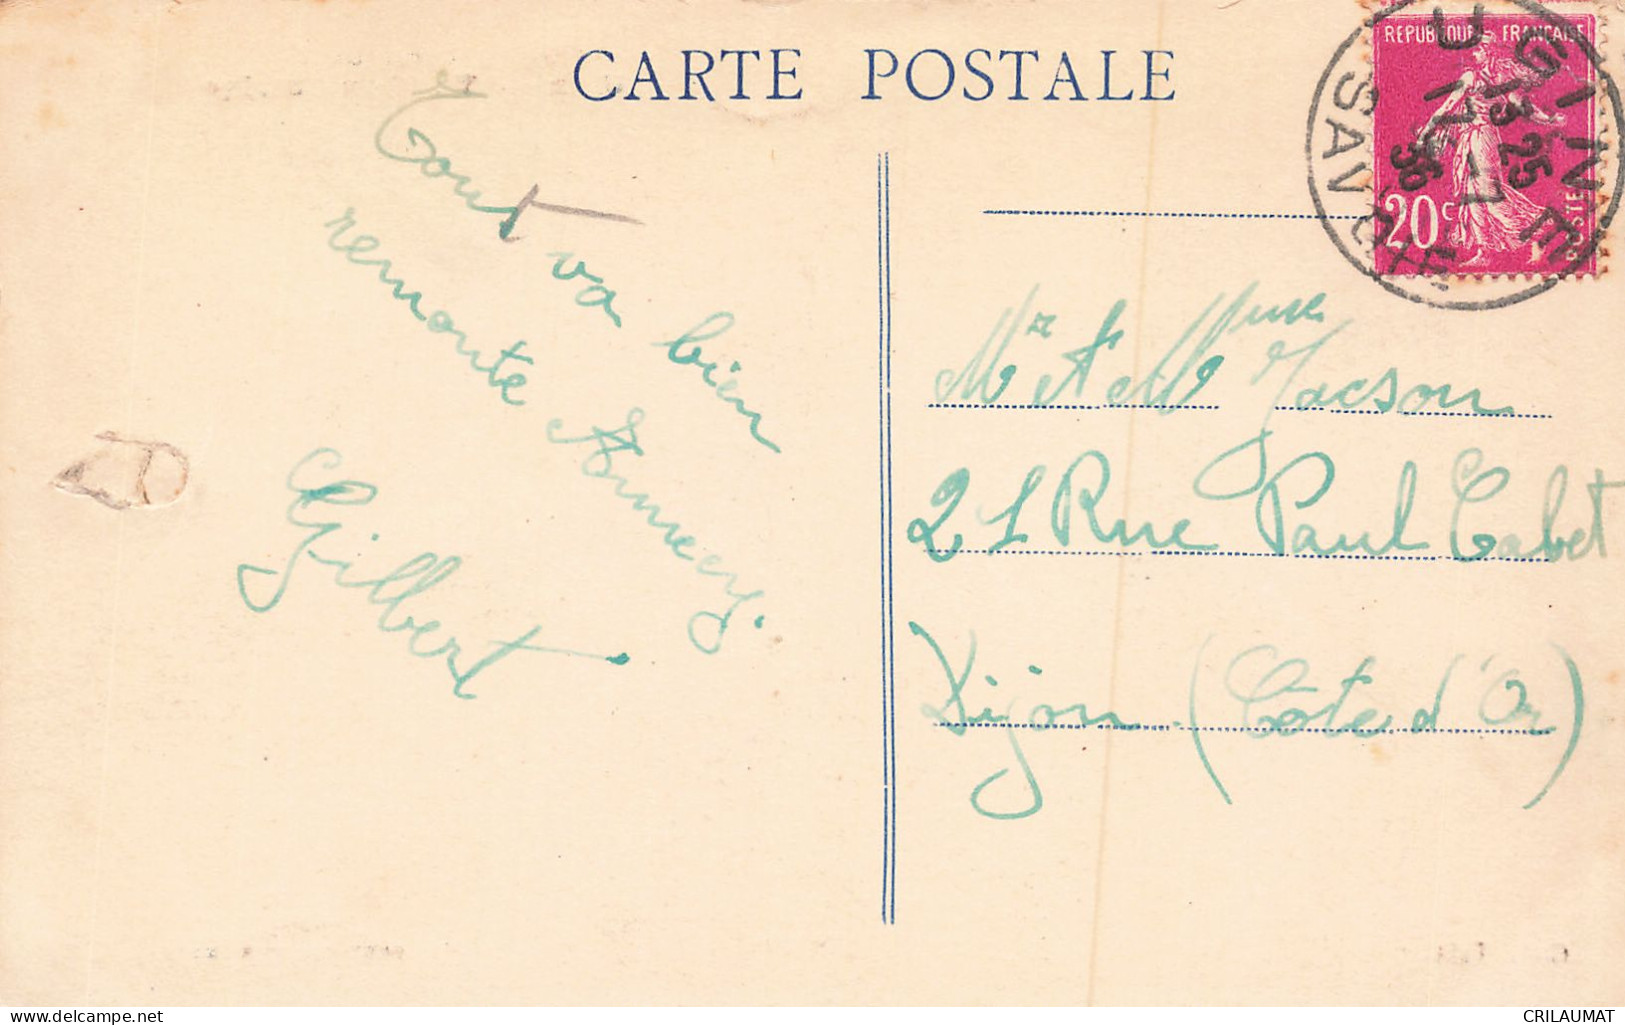 CARTE POSTALE
REPUBLIQUE FRANÇAISE
20c
POSTES
UGINE
13 25
17-7
36
SAVOIE
Tout va bien
remonte Annecy.
Gilbert
Mr et Mme Jacson
21 Rue Paul Cabet
Dijon (Côte d'Or)
delcampe.net
CRILAUMAT